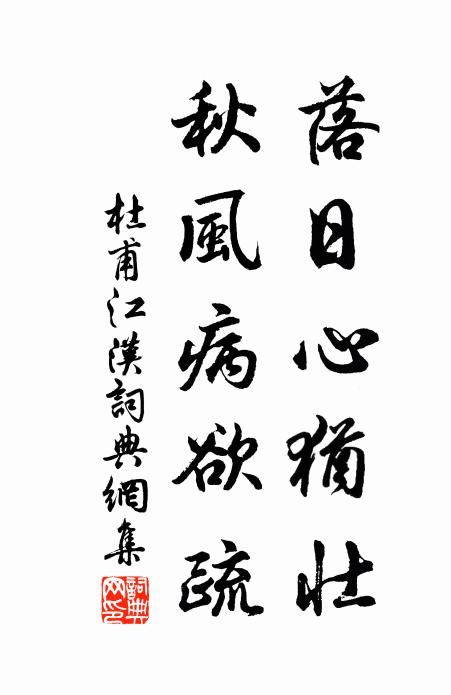 落日心猶壯
秋風病欲疏
杜甫江漢詞典網集
詞典網印